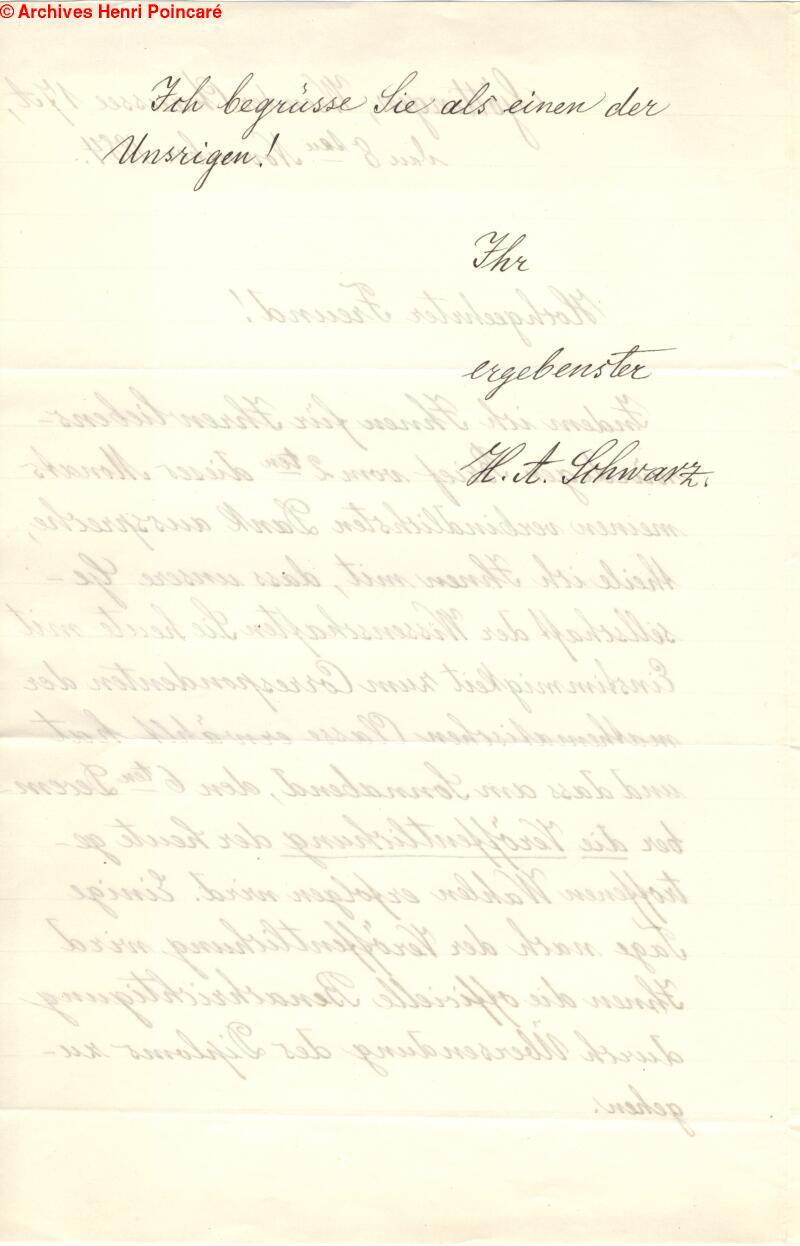 © Archives Henri Poincaré
Ich begrüsse Sie als einen der
Unsrigen!
Ihr
ergebenster
H. A. Schwarz.